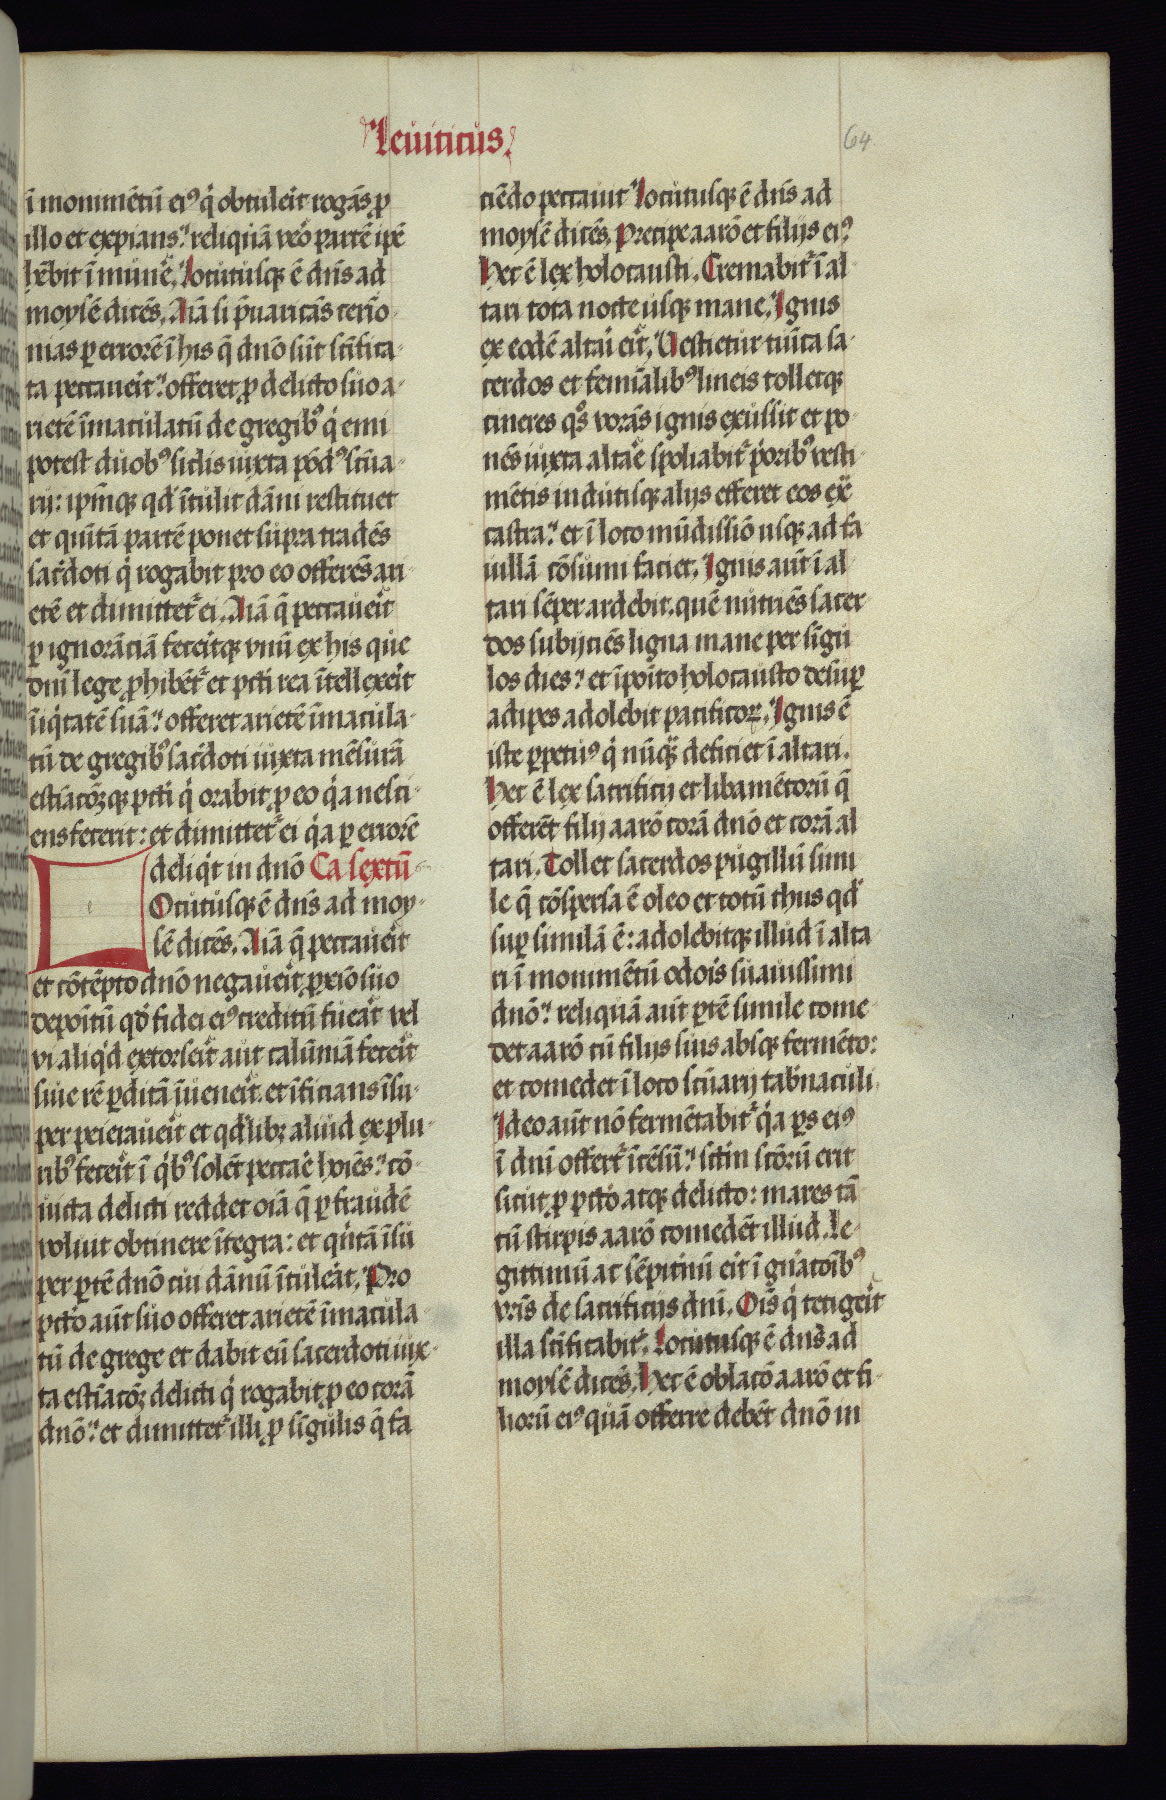 Leuiticus
64
ī monumētū eiꝰ q̇ obtuleꝛ̄it rogās ꝓ
illo et expians. reliquā vеꝛō partē ip̄e
hēbit ī mūneꝛ̄e. Locutusqꝫ ē dn̄s ad
moysē dicēs. Aīa si p̄uaricās ceri͞o
nias ꝑ errorē ī his q̄ dn̄o sūt sc̄ifica
ta peccaueꝛ̄it. offeret ꝓ delicto suo a
rietē īmaculatū de gregibꝰ q̇ emi
potest duobꝰ siclis iuxta pōdꝰ sc̄ua
rij: ip̄mqꝫ qd̄ ītulit dāni restituet
et quītā partē ponet supra tradēs
sac̄doti q̇ rogabit pro eo offerēs ari
etē et dimittet᷑ ei. Aīa q̄ peccaueꝛ̄it
ꝑ ignorāciā feceꝛ̄itqꝫ vnū ex his que
dn̄i lege ꝓhibēt᷑ et pc̄ti rea ītellexeꝛ̄it
īiq̇tatē suā. offeret arietē īmacula
tū de gregibꝰ sac̄doti iuxta mēsurā
estīacōꝫqꝫ pc̄ti q̇ orabit ꝓ eo q̇a nesci
ens fecerit: et dimittet᷑ ei q̇a ꝑ errorē
deliq̇t in dn̄o Ca sextū
LOcutusqꝫ ē dn̄s ad moy
sē dicēs. Aīa q̄ peccaueꝛ̄it
et cōtēpto dn̄o negaueꝛ̄it ꝓxīo suo
depoītū qd̄ fidei eiꝰ creditū fueꝛ̄at vel
vi aliq̇d extorseꝛ̄it aut calūniā feceꝛ̄it
siue rē ꝑditā īueneꝛ̄it. et īficians īsu
per peieraueꝛ̄it et qd̄libꝫ aliud ex plu
ribꝰ feceꝛ̄it ī q̇bꝰ solēt peccaꝛ̄e hoīes. cō
uicta delicti reddet oīa q̄ ꝑ fraudē
voluit obtinere ītegra: et q̇ntā īsu
per ꝑtē dn̄o cui dānū ītuleꝛ̄at. Pro
pc̄tō aūt suo offeret arietē īmacula
tū de grege et dabit eū sacerdoti iux
ta estīacōꝫ delicti q̇ rogabit ꝓ eo corā
dn̄o. et dimittet᷑ illi ꝓ sīgulis q̄ fa
ciēdo peccauit Locutusqꝫ ē dn̄s ad
moysē dicēs. Precipe aarō et filijs eiꝰ
Hec ē lex holocausti. Cremabit᷑ ī al
tari tota nocte usqꝫ mane. Ignis
ex eodē altaꝛ̄i eꝛ̄it. Uestietur tuīca sa
cerdos et femīalibꝰ lineis tolletqꝫ
cineres qͦs vorās ignis exussit et po
nēs iuxta altaꝛ̄e spoliabit᷑ ṗoribꝰ vesti
mētis indutusqꝫ alijs efferet eos ex̄
castra. et ī loco mūdissīo usqꝫ ad fa
uillā cōsumi faciet. Ignis aūt ī al
tari sēper ardebit. quē nutriēs sacer
dos subijciēs ligna mane per sīgu
los dies. et īpoīto holocausto desuꝑ
adipes adolebit pacificoꝝ. Ignis ē
iste ꝑpetuꝰ q̇ nūqᷓ deficiet ī altari.
Hec ē lex sacrificij et libamētorū q̄
offerēt filij aarō corā dn̄o et corā al
tari. Tollet sacerdos pugillū simi
le q̄ cōspersa ē oleo et totū thus qd̄
suꝑ similā ē: adolebitqꝫ illud ī alta
ri ī monumētū odoꝛ̄is suauissimi
dn̄o. reliquā aūt ꝑtē simile come
det aarō cū filijs suis absqꝫ fermēto:
et comedet ī loco sc̄uarij tab̄naculi
Ideo aūt nō fermētabit᷑ q̇a ꝑs eiꝰ
ī dn̄i offert᷑ īcēsū. sc̄m sc̄orū erit
sicut ꝓ pc̄tō atqꝫ delicto: mares tā
tū stirpis aarō comedēt illud. Le
gittimū ac sēpit̄nū eꝛ̄it ī gn̄acōibꝰ
vr̄is de sacrificijs dn̄i. Oīs q̇ tetigeꝛ̄it
illa sc̄ificabit᷑. Locutusqꝫ ē dn̄s ad
moysē dicēs. Hec ē oblacō aarō et fi
liorū eiꝰ quā offerre debēt dn̄o in